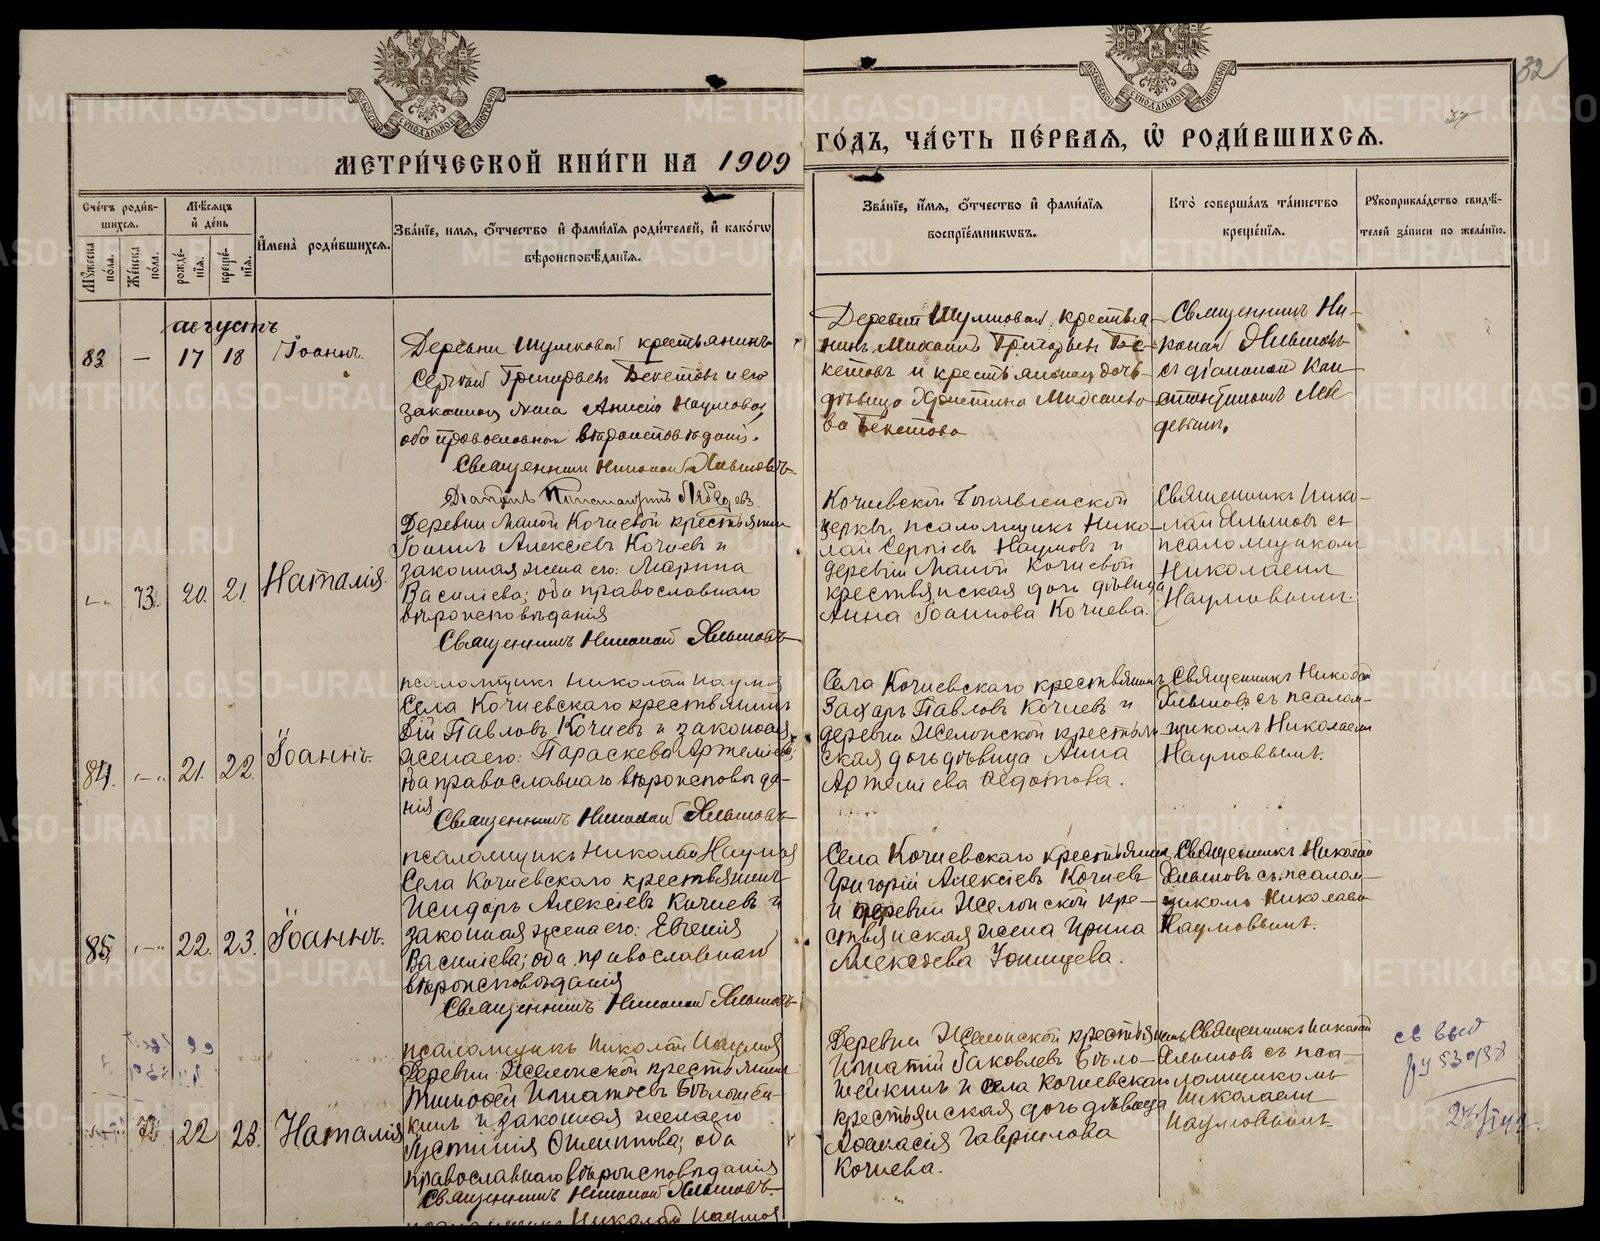 32
МЕТРИ́ЧЕСКОЙ КНИ́ГИ НА 1909
ГО́ДЪ, ЧА́СТЬ ПЕ́РВАѦ, Ѡ҆ РОДИ́ВШИХСѦ.
Сче́тъ роди́в-
шихсѧ.
Мꙋ́жеска по́ла.
Же́нска по́ла.
Мѣ́сѧцъ
и҆ де́нь
рожде́-
нїѧ.
креще́-
нїѧ.
И҆мена̀ роди́вшихсѧ.
Зва́нїе, имѧ, ѻ҆́тчество и҆ фами́лїѧ роди́телей, и҆ како́гѡ
вѣроисповѣ́данїѧ.
Зва́нїе, и҆́мѧ, ѻ҆́тчество и҆ фами́лїѧ
воспрїе́мникѡвъ.
Кто̀ соверша́лъ та́инство
креще́нїѧ.
Рꙋкоприкла́дство свидѣ́-
телей за́писи по жела́нїю.
августъ
83 — 17 18 Іоаннъ.
Деревни Шумковой крестьянинъ
Григорьевъ Бекетовъ и его
законная жена Анисія Наумова,
оба православнаго вѣроисповѣданія.
Священникъ Николай Хлыновъ
Діаконъ Константинъ Лебедевъ
Деревни Шумковой крестья-
нинъ Михаилъ Григорьевъ Бе-
кетовъ и крестьянская дочь
дѣвица Христина Михаило-
ва Бекетова
Священникъ Ни-
колай Хлыновъ
съ діакономъ Кон-
стантиномъ Лебе
девымъ.
73. 20. 21. Наталія.
Деревни Малой Кочневой крестьянинъ
Іоаннъ Алексіевъ Кочневъ и
законная жена его: Марина
Василіева; оба православнаго
вѣроисповѣданія
Священникъ Николай Хлыновъ
псаломщикъ Николай Наумовъ
Кочневской Богоявленской
церкви псаломщикъ Нико-
лай Сергіевъ Наумовъ и
деревни Малой Кочневой
крестьянская дочь дѣвица
Анна Іоаннова Кочнева.
Священникъ Нико-
лай Хлыновъ съ
псаломщикомъ
Николаемъ
Наумовымъ.
84. —. 21. 22. Іоаннъ.
Села Кочневскаго крестьянинъ
Павловъ Кочневъ и законная
жена его: Параскева Артеміева
оба православнаго вѣроисповѣда-
нія
Священникъ Николай Хлыновъ
псаломщикъ Николай Наумовъ
Села Кочневскаго крестьянинъ
Захаръ Павловъ Кочневъ и
деревни Желонской крестьян-
ская дочь дѣвица Анна
Артеміева Федотова.
Священникъ Николай
Хлыновъ съ псалом-
щикомъ Николаемъ
Наумовымъ.
85. —. 22. 23. Іоаннъ.
Села Кочневскаго крестьянинъ
Исидоръ Алексіевъ Кочневъ и
законная жена его: Евгенія
Василіева; оба православнаго
вѣроисповѣданія
Священникъ Николай Хлыновъ
псаломщикъ Николай Наумовъ
Села Кочневскаго крестьянинъ
Григорій Алексіевъ Кочневъ
и деревни Желонской кре-
стьянская жена Ирина
Алексѣева
Священникъ Николай
Хлыновъ съ псалом-
щикомъ Николаемъ
Наумовымъ.
22 23. Наталія
Деревни Желонской крестьянинъ
Тимофей Игнатіевъ Бѣлошей-
кинъ и законная жена его
Іустинія оба
православнаго вѣроисповѣданія
Священникъ Николай Хлыновъ.
псаломщикъ Николай Наумовъ
Деревни Желонской крестьянинъ
Игнатій Іаковлевъ Бѣло-
шейкинъ и села Кочневскаго
крестьянская дочь дѣвица
Афанасія Гаврилова
Кочнева.
Священникъ Николай
Хлыновъ съ псa-
ломщикомъ
Николаемъ
Наумовымъ.